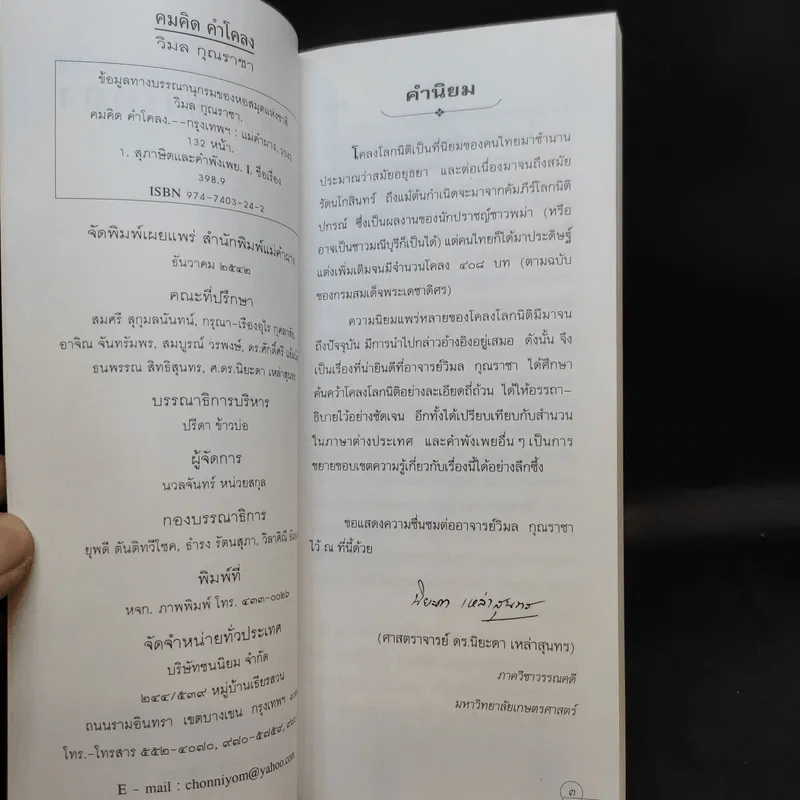 คมคิด คำโคลง
วิมล กุณราชา
ข้อมูลทางบรรณานุกรมของหอสมุดแห่งชาติ
วิมล กุณราชา.
คมคิด คำโคลง.--กรุงเทพฯ : แม่คำผาง, 2542
132 หน้า.
1. สุภาษิตและคำพังเพย, I. ชื่อเรื่อง
398.9
ISBN 974-7403-24-2
จัดพิมพ์เผยแพร่ สำนักพิมพ์แม่คำผาง
ธันวาคม ๒๕๔๒
คณะที่ปรึกษา
สมศรี สุกุมลนันทน์, กรุณา-เรืองอุไร กุศลาสัย,
อาจิณ จันทรัมพร, สมบูรณ์ วรพงษ์, ดร.ศักดิ์ศรี
ธนพรรณ สิทธิสุนทร, ศ.ดร.นิยะดา เหล่าสุนทร
บรรณาธิการบริหาร
ปรีดา ข้าวบ่อ
ผู้จัดการ
นวลจันทร์ หน่วยสกุล
กองบรรณาธิการ
ยุพดี ตันติทวีโชค, ธำรง รัตนสุภา, วิลาศิณี
พิมพ์ที่
หจก. ภาพพิมพ์ โทร. ๔๓๓-๐๐๒๖
จัดจำหน่ายทั่วประเทศ
บริษัทชนนิยม จำกัด
๒๔๔/๕๓๙ หมู่บ้านเธียรสวน
ถนนรามอินทรา เขตบางเขน กรุงเทพฯ
โทร.-โทรสาร ๕๕๒-๔๐๗๐, ๙๗๐-๕๗๕๙,
E - mail : chonniyom@yahoo.com
คำนิยม
โคลงโลกนิติเป็นที่นิยมของคนไทยมาช้านาน
ประมาณว่าสมัยอยุธยา และต่อเนื่องมาจนถึงสมัย
รัตนโกสินทร์ ถึงแม้ต้นกำเนิดจะมาจากคัมภีร์โลกนิติ
ปกรณ์ ซึ่งเป็นผลงานของนักปราชญ์ชาวพม่า (หรือ
อาจเป็นชาวมณีปุรีก็เป็นได้) แต่คนไทยก็ได้มาประดิษฐ์
แต่งเพิ่มเติมจนมีจำนวนโคลง ๔๐๘ บท (ตามฉบับ
ของกรมสมเด็จพระเดชาดิศร)
ความนิยมแพร่หลายของโคลงโลกนิติมีมาจน
ถึงปัจจุบัน มีการนำไปกล่าวอ้างอิงอยู่เสมอ ดังนั้น จึง
เป็นเรื่องที่น่ายินดีที่อาจารย์วิมล กุณราชา ได้ศึกษา
ค้นคว้าโคลงโลกนิติอย่างละเอียดถี่ถ้วน ได้ให้อรรถา-
ธิบายไว้อย่างชัดเจน อีกทั้งได้เปรียบเทียบกับสำนวน
ในภาษาต่างประเทศ และคำพังเพยอื่นๆ เป็นการ
ขยายขอบเขตความรู้เกี่ยวกับเรื่องนี้ได้อย่างลึกซึ้ง
ขอแสดงความชื่นชมต่ออาจารย์วิมล กุณราชา
ไว้ ณ ที่นี้ด้วย
นิยะดา เหล่าสุนทร
(ศาสตราจารย์ ดร.นิยะดา เหล่าสุนทร)
ภาควิชาวรรณคดี
มหาวิทยาลัยเกษตรศาสตร์
๓